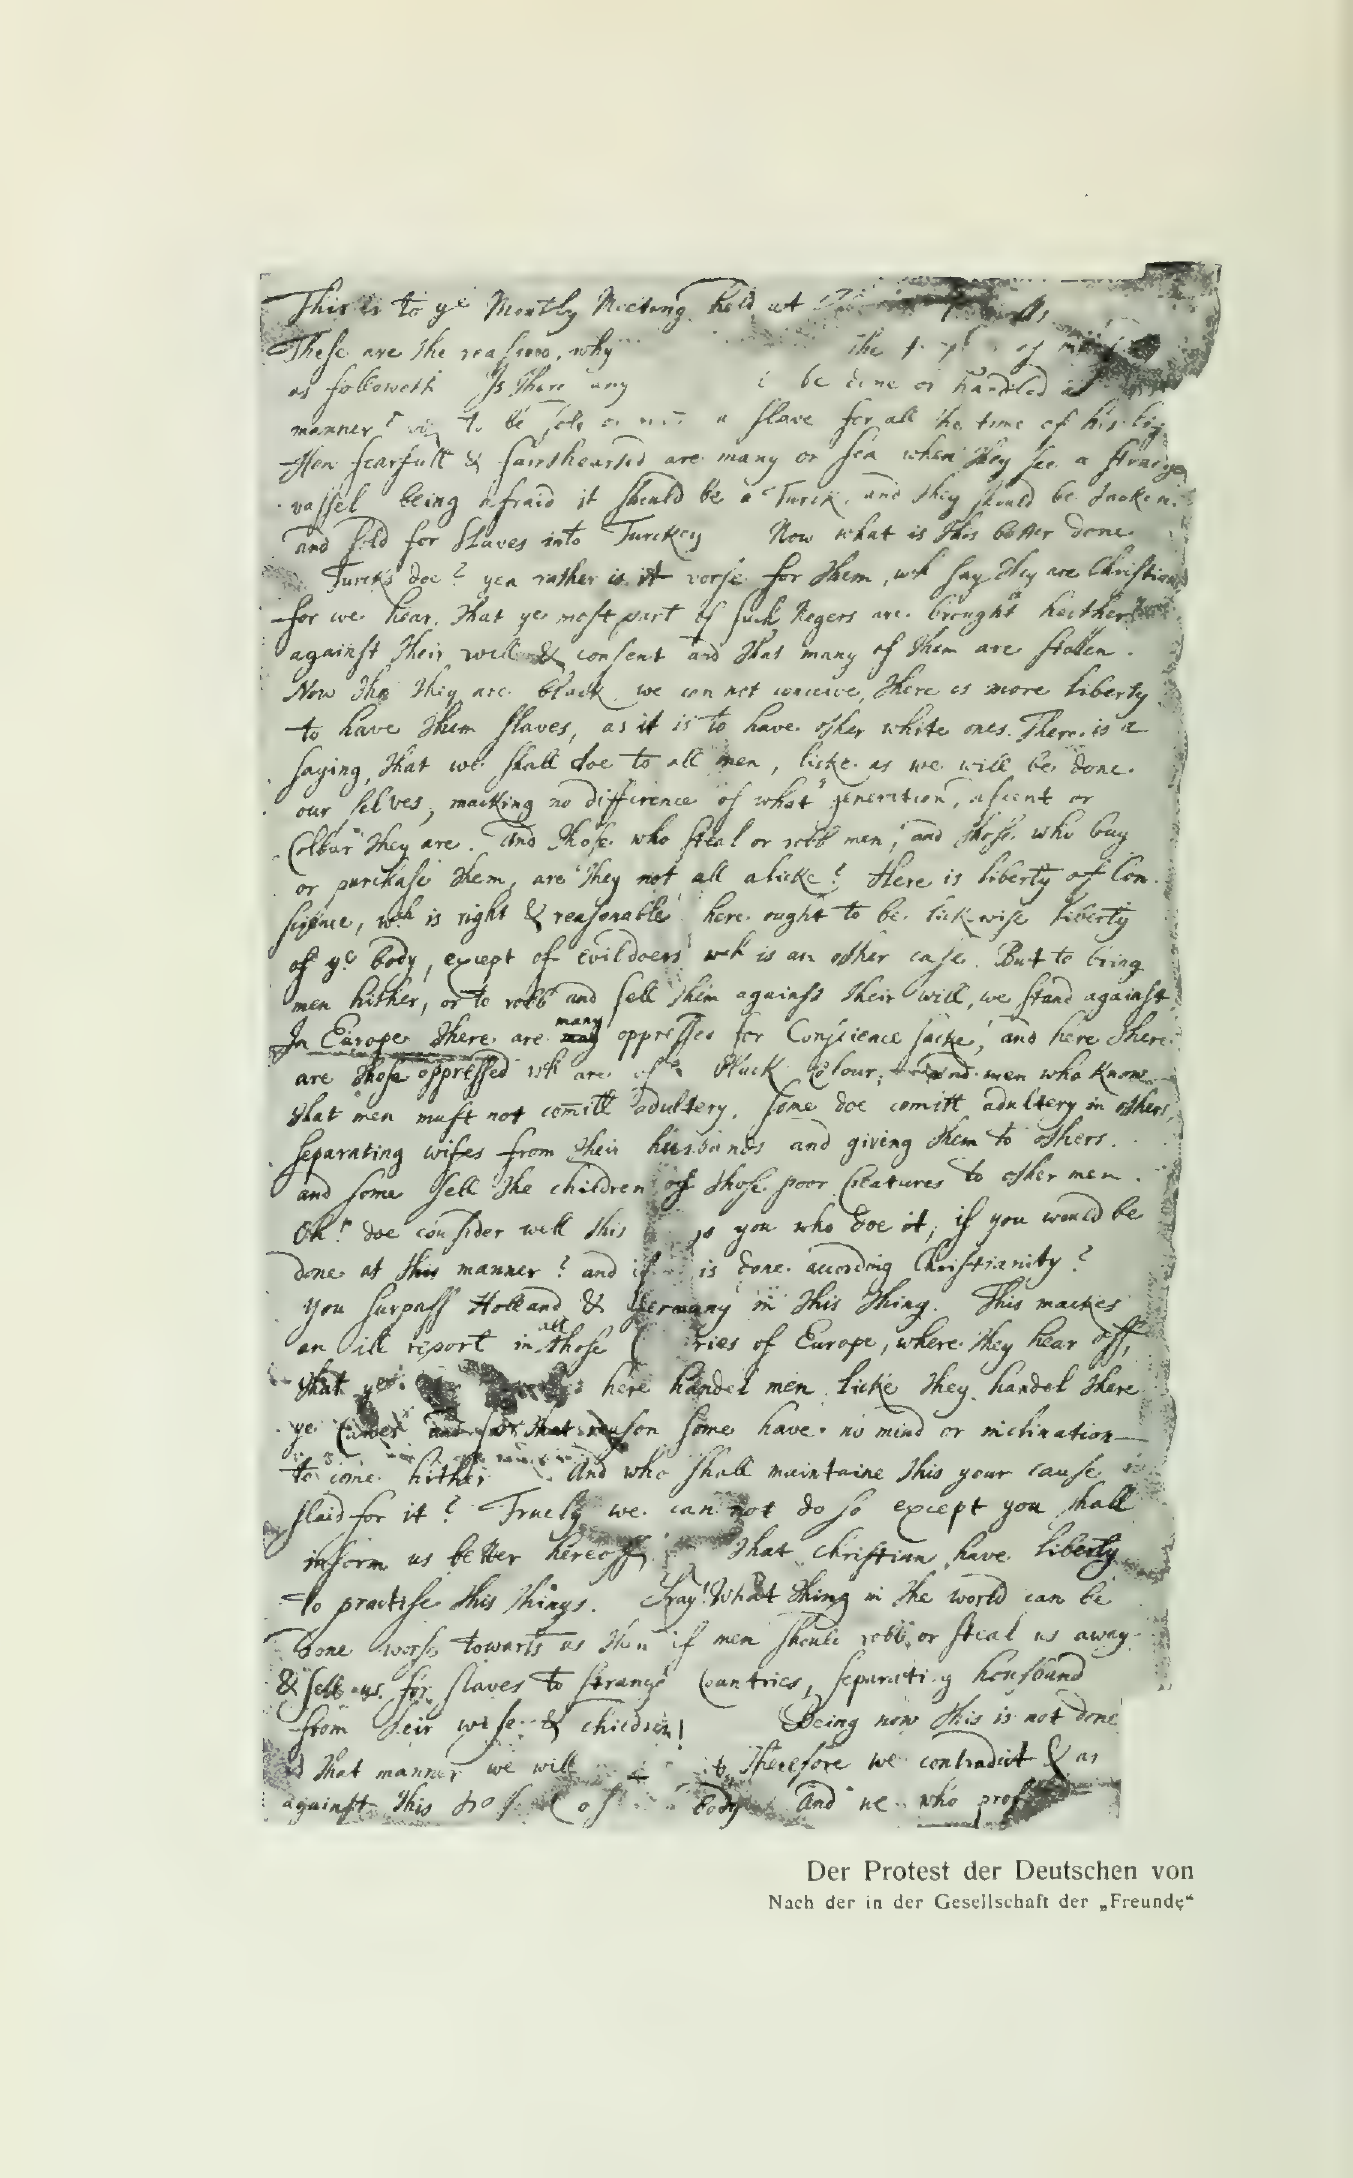 This is to yᵉ Monthly Meeting held at
These are the reasons why the of
as followeth Is there any be done or handled
manner? to be a slave for all the time of his
How fearfull & fainthearted are many or sea when they see a strange
vassel being afraid it should be a Turck, and they should be tacken
and sold for slaves into Turckey Now what is this better done
Turcks doe? yea rather is it worse for them, wch say they are Christians
for we hear, that ye most part of such Negers are brought heither
against their will & consent and that many of them are stollen.
Now tho they are black, we can not conceive, there is more liberty
to have them slaves, as it is to have other white ones. There is a
saying, that we shall doe to all men, licke as we will be done
our selves, macking no difference of what generation, descent or
Collour they are. and those who steal or robb men, and those who buy
or purchase them, are they not all alicke? Here is liberty of Con
science, wch is right & reasonable here ought to be lickewise liberty
of yᵉ body, except of evildoers wch is an other case. But to bring
men hither, or to robb and sell them against their will, we stand against
In Europe there are many oppressed for Conscience sacke; and here there
are those oppressed wh are of a black Colour; and men who know
that men must not comitt adultery, some doe comitt adultery in others,
separating wifes from their husbands and giving them to others.
and some sell the children of those poor Creatures to other men.
Oh! doe consider well this you who doe it, if you would be
done at this manner? and if is done according Christianity?
you surpass Holland & Germany in this thing. This mackes
an ill report in all those ries of Europe, where they hear off,
that yᵉ here handel men licke they handel there
ye and for that reason some have no mind or inclination
to come hither And who shall maintaine this your cause
plaid for it? Truely we can not do so except you shall
inform us better hereoff, that christian have liberty
to practise this things. Pray! What thing in the world can be
done worse towarts us then if men should robb or steal us away
& sell us for slaves to strange Countries, separating housband
from their wife & children! Being now this is not done
that manner we will Therefore we contradict & as
against this of body And we who prof
Der Protest der Deutschen von
Nach der in der Gesellschaft der „Freunde“